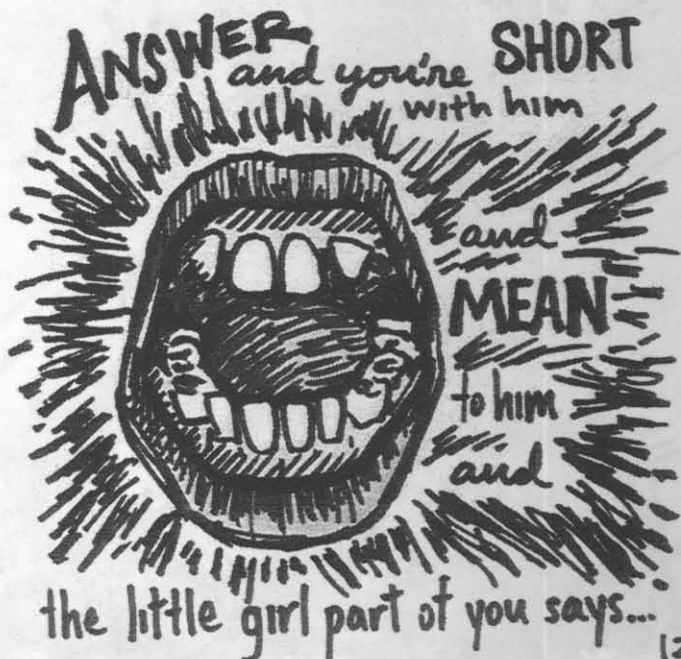 ANSWER and you're SHORT
with him
and
MEAN
to him
and
the little girl part of you says...